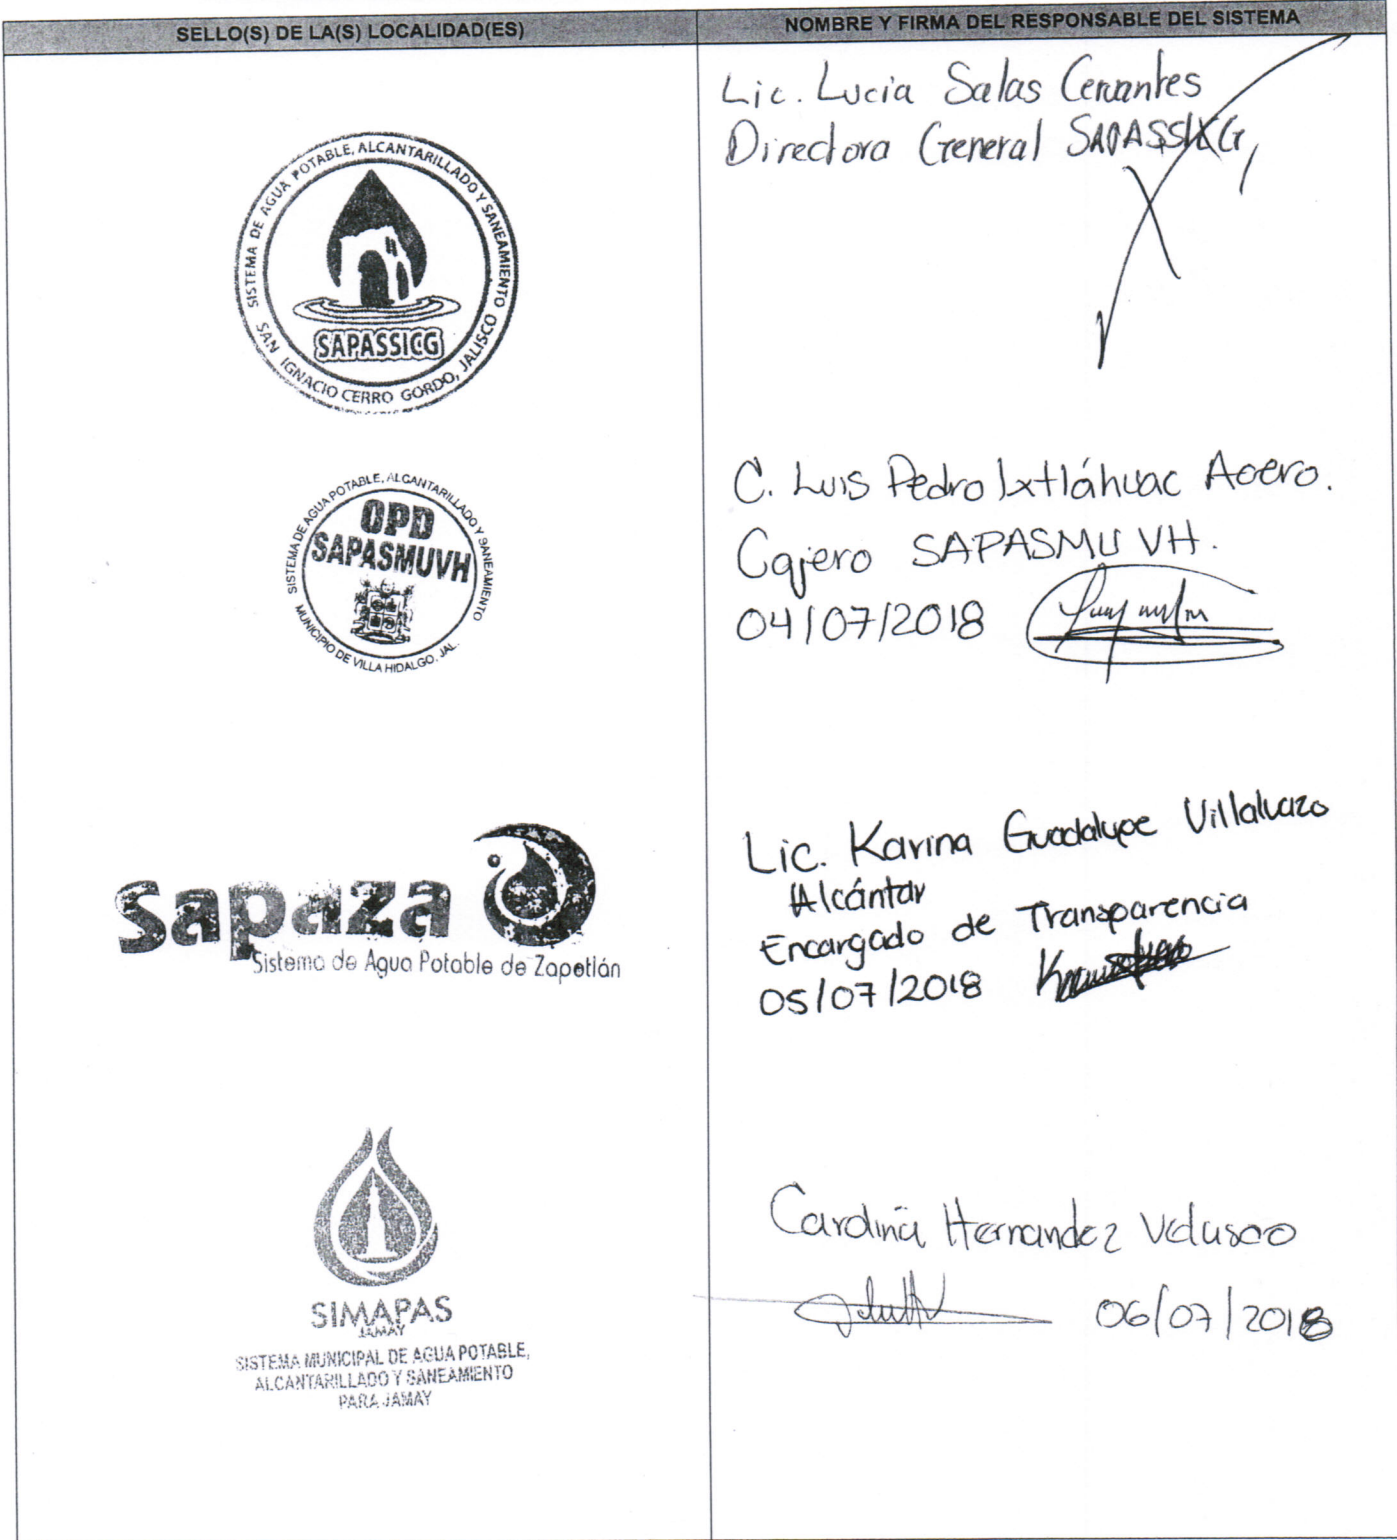 SELLO(S) DE LA(S) LOCALIDAD(ES)
NOMBRE Y FIRMA DEL RESPONSABLE DEL SISTEMA
SISTEMA DE AGUA POTABLE, ALCANTARILLADO Y SANEAMIENTO
SAPASSICG
SAN IGNACIO CERRO GORDO, JALISCO
Lic. Lucia Salas Cervantes
Directora General SAPASSICG,
SISTEMA DE AGUA POTABLE, ALCANTARILLADO Y SANEAMIENTO
OPD
SAPASMUVH
MUNICIPIO DE VILLA HIDALGO, JAL.
C. Luis Pedro Ixtláhuac Acero.
Cajero SAPASMU VH.
04/07/2018
Sapaza
Sistema de Agua Potable de Zapotlán
Lic. Karina Guadalupe Villalvazo
Alcántar
Encargado de Transparencia
05/07/2018
SIMAPAS
JAMAY
SISTEMA MUNICIPAL DE AGUA POTABLE,
ALCANTARILLADO Y SANEAMIENTO
PARA JAMAY
Carolina Hernandez Velasco
06/07/2018